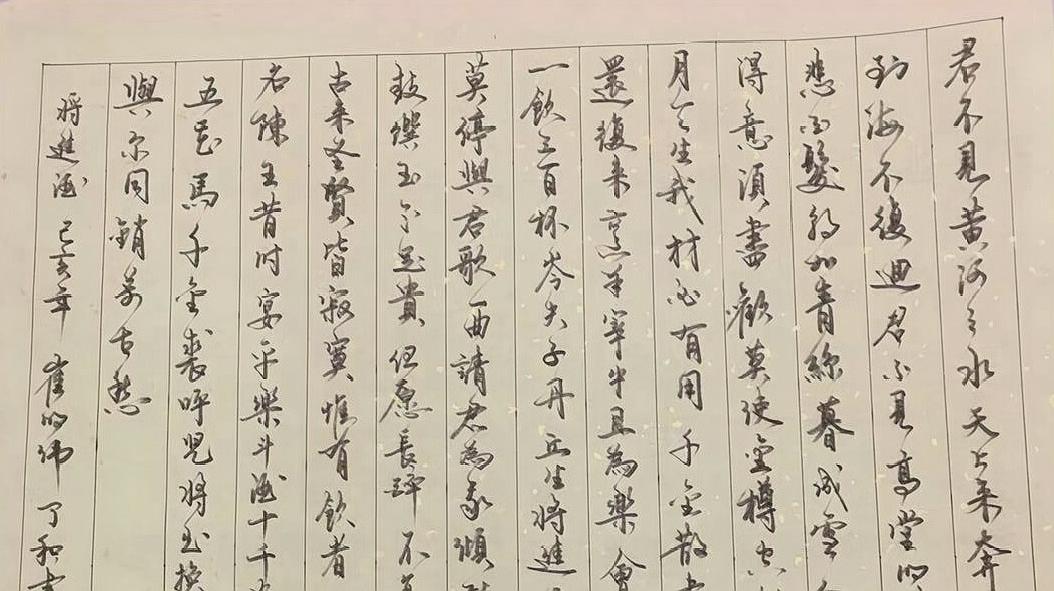 君不見黃河之水天上來奔
到海不復迴君不見高堂明
悲白髮朝如青絲暮成雪
得意須盡歡莫使金樽空
月天生我材必有用千金散
還復來烹羊宰牛且為樂會
一飲三百杯岑夫子丹丘生將進
莫停與君歌一曲請君為我傾
鼓饌玉不足貴但愿長醉不
古來圣賢皆寂寞惟有飲者
名陳王昔時宴平樂斗酒十千
五花馬千金裘呼兒將出換
與尔同銷萬古愁
將進酒 己亥年 崔明偉 了和書